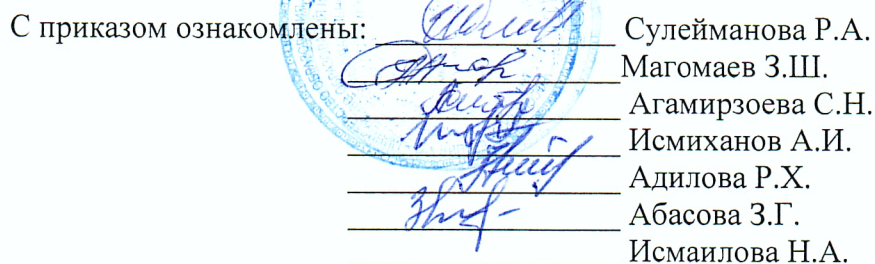 С приказом ознакомлены: ____________ Сулейманова Р.А.
____________ Магомаев З.Ш.
____________ Агамирзоева С.Н.
____________ Исмиханов А.И.
____________ Адилова Р.Х.
____________ Абасова З.Г.
Исмаилова Н.А.